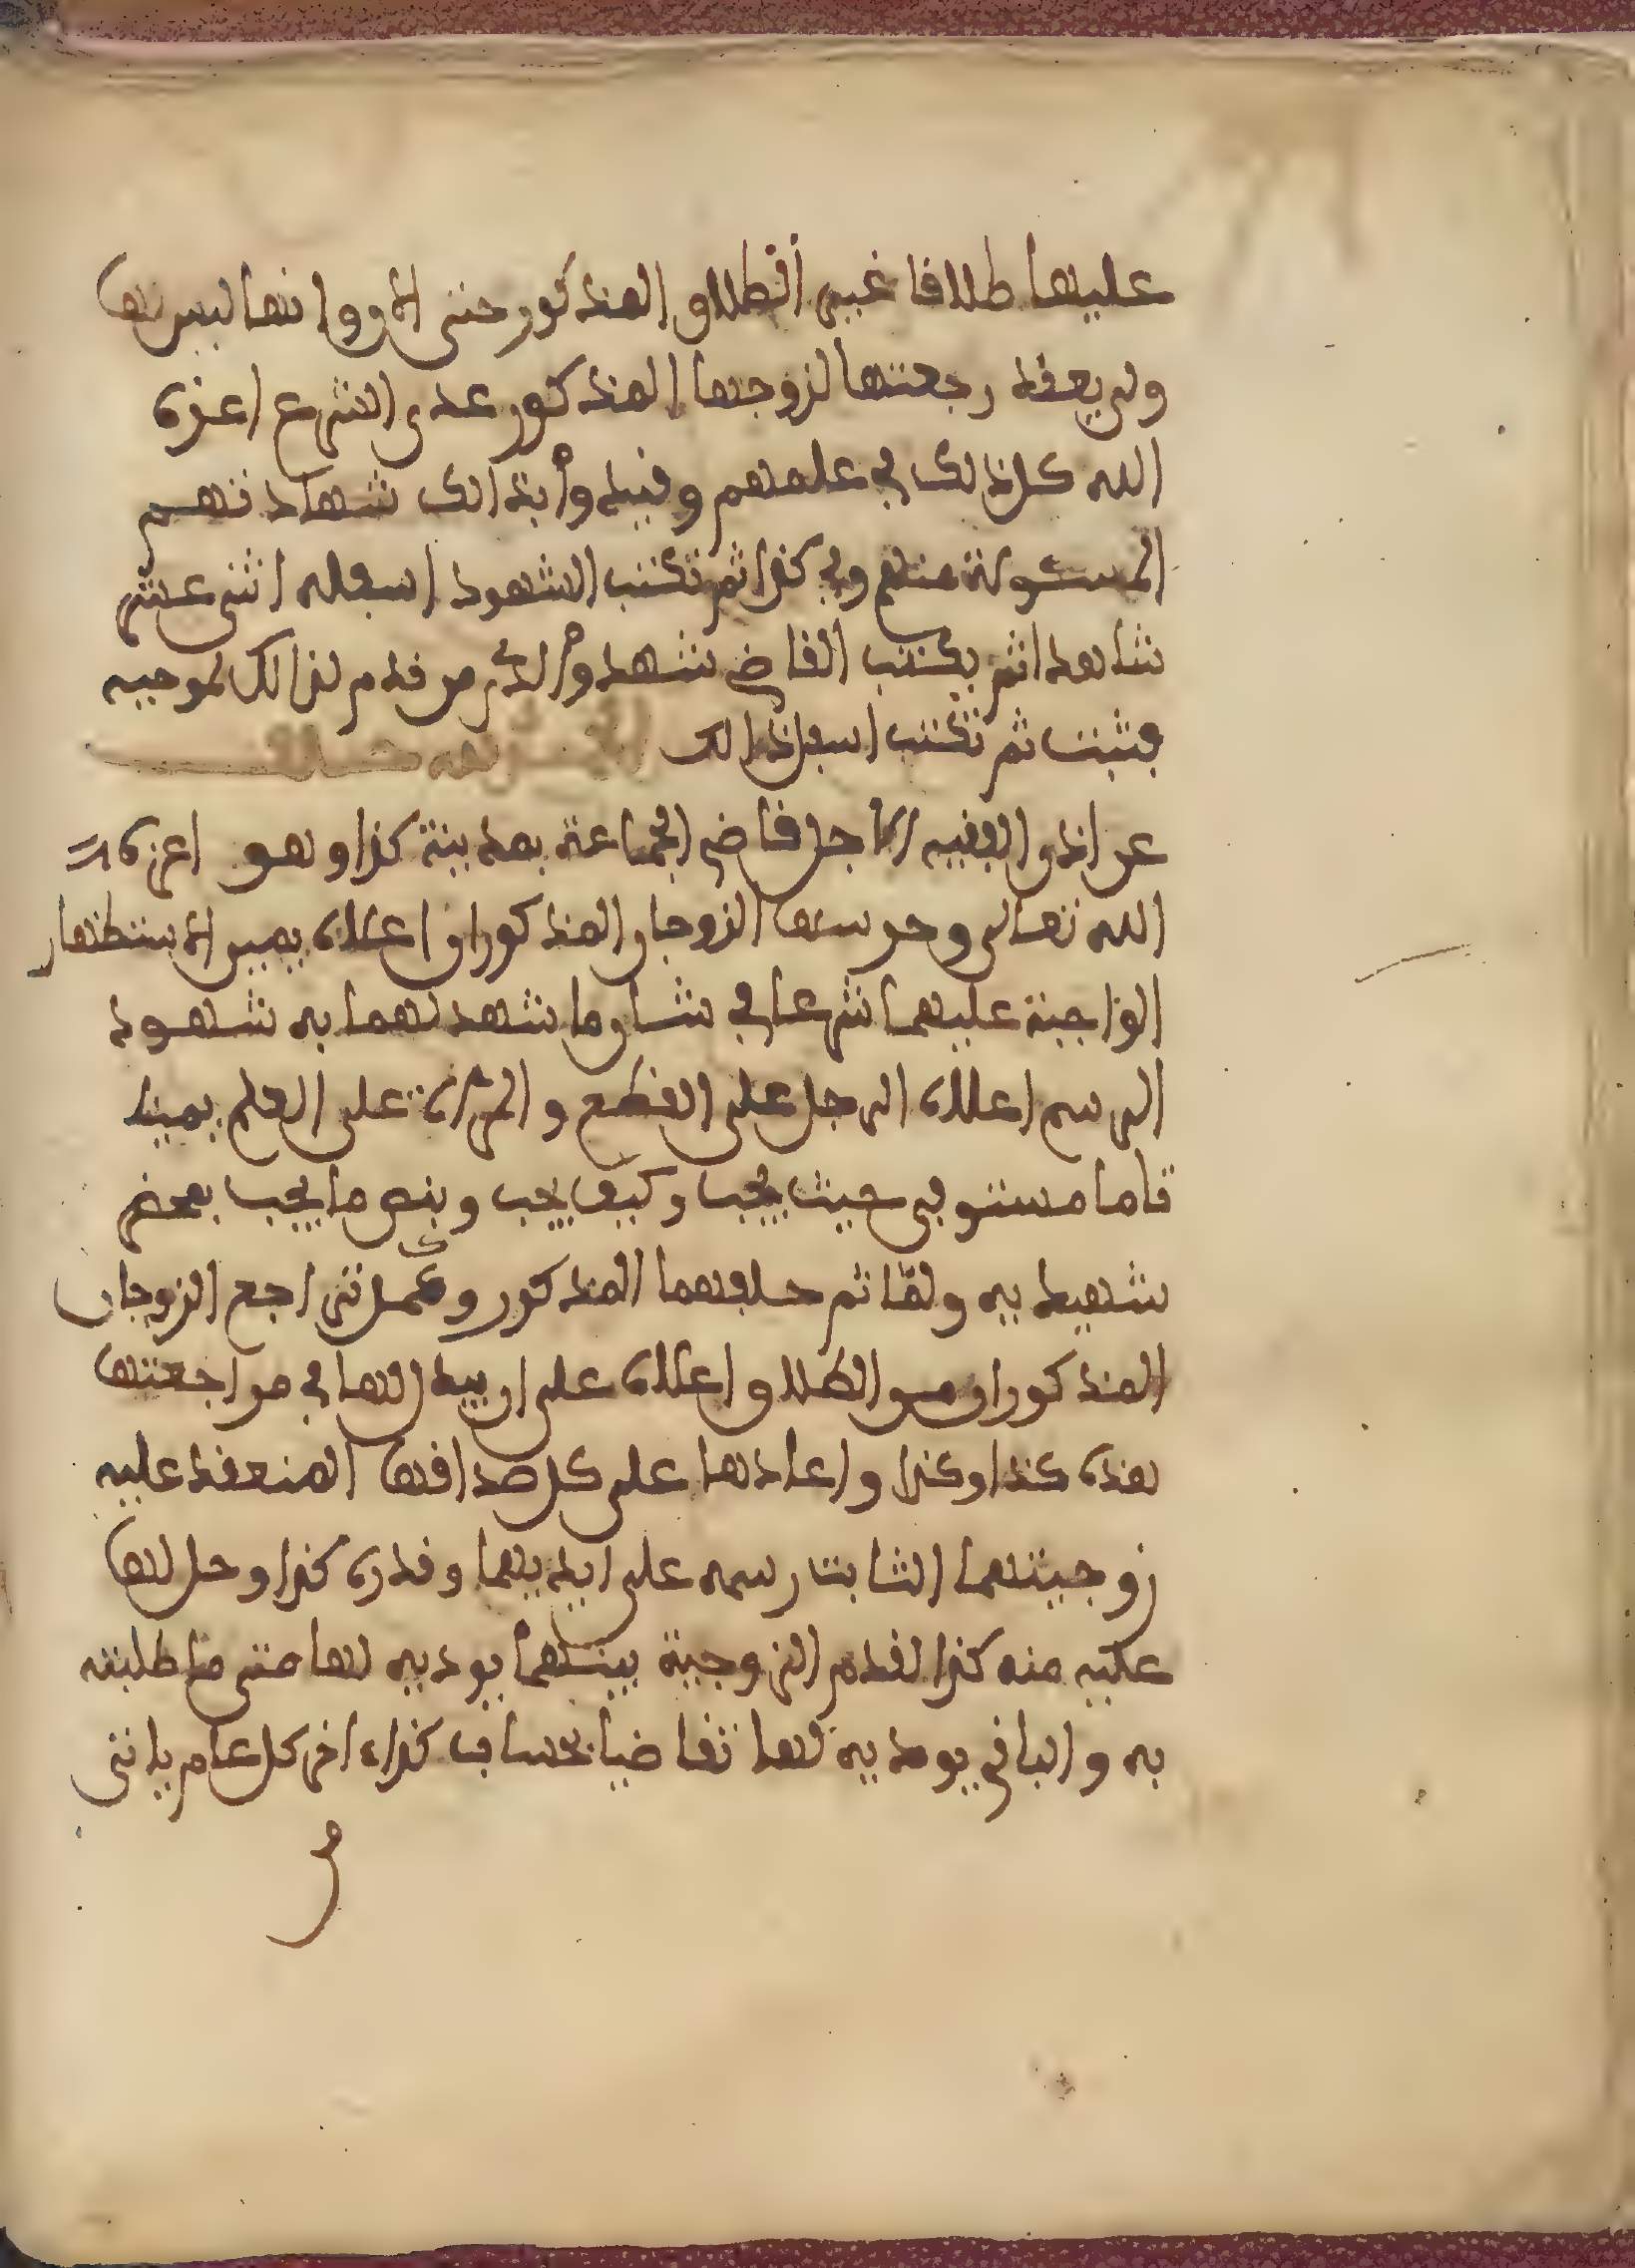 عليها طلاقا غير الطلاق المذكور حتى الان وانها ليس لها
ولى يعقد رجعتها لزوجها المذكور عدى الشرع اعزه
الله كل ذالك في علمهم وقيدوا بذالك شهادتهم
المسئولة منهم وفي كذا ثم تكتب الشهود اسفله اثنى عشر
شاهدا ثم يكتب القاضي شهدوا لدى من قدم لذالك بموجبه
فثبت ثم تكتب اسفل ذالك الحمد لله حلف
عن اذن الفقيه الاجل قاضي الجماعة بمدينة كذا وهو اعزه
الله تعالى وحرسها الزوجان المذكوران اعلاه يمين الاستظهار
الواجبة عليهما شرعا في شان ما شهد لهما به شهود
الرسم اعلاه الرجل على القطع والمراة على العلم يمينا
قاما مستوفى حيث يجب وكيف يجب وبنص ما يجب بمحضر
شهيديه ولما تم حلفهما المذكور وكمل تراجع الزوجان
المذكوران من الطلاق اعلاه على ان بذل لها في مراجعتها
هذه كذا وكذا واعادها على كل صداقها المنعقد عليه
زوجيتهما الثابت رسمه على ايديهما وقدره كذا وحل لها
عليه منه كذا لقدم الزوجية بينهما يوديه لها متى ما طلبته
به والباقي يوديه لها تقاضيا بحساب كذا اخر كل عام ياتى